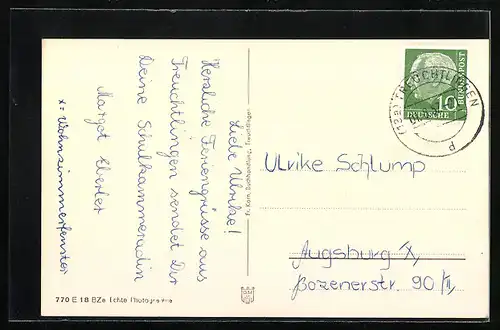 Liebe Ulrike!
Herzliche Feriengrüsse aus
Treuchtlingen sendet Dir
Deine Schulkammeradin
Margot Eberlet
x = Wohnzimmerfenster
770 E 18 BZe Echte Photographie
Fr. Korn, Buchhandlung, Treuchtlingen
DEUTSCHE
BUNDESPOST
10
TREUCHTLINGEN
d
Ulrike Schlump
Augsburg X,
Bozenerstr. 90/II,